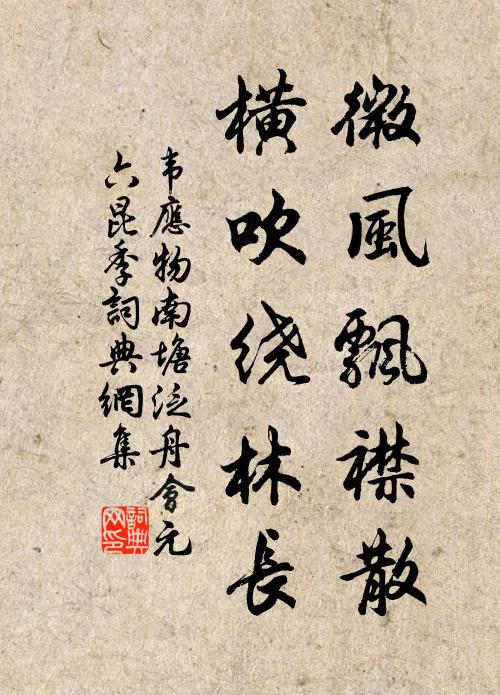 微風飄襟散
橫吹绕林長
韦應物南塘泛舟會元
六昆季詞典網集
詞典网印